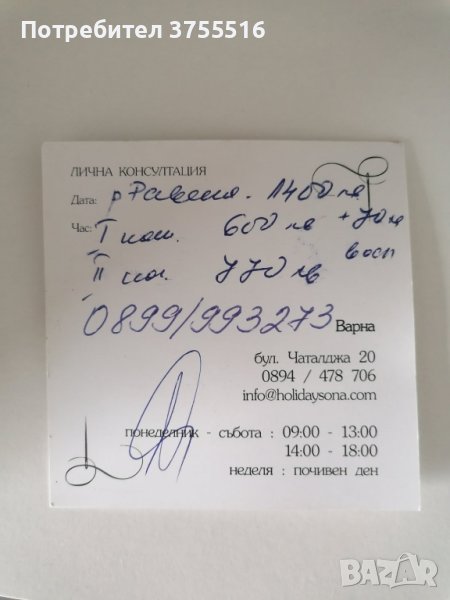 Потребител 3755516
ЛИЧНА КОНСУЛТАЦИЯ
Дата: р Равена. 1400 лв
Час: I кат. 600 лв + 70 лв
II 770 лв
0899/993273 Варна
бул. Чаталджа 20
0894 / 478 706
info@holidaysona.com
понеделник - събота : 09:00 - 13:00
14:00 - 18:00
неделя : почивен ден
BAZAR